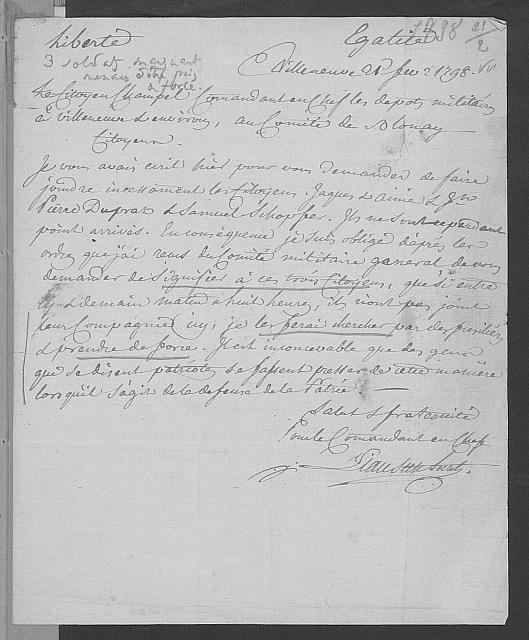 Liberté Egalité
1798 21/2
3 soldats manquant
menacés d'être pris
de force.
Villeneuve 21 fev 1798.
Le Citoyen Champel, Comandant en Chef les depots militaires
à Villeneuve & environs, au Comité de Blonay
Citoyens
Je vous avais ecrit hier pour vous demander de faire
joindre incessamment les Citoyens Jaques d'Aimé & Jn
Pierre Duprat & Samuel Schopfer. Ils ne sont cependant
point arrivés. En conséquence je suis obligé d'après les
ordres que j'ai reçus du Comité militaire general de vous
demander de signifier à ces trois Citoyens, que si entre
cy & demain matin a huit heures, ils n'ont pas joint
leur Compagnie icy; je les ferai chercher par des
& prendre de force. Il est inconcevable que des gens
qui se disent patriotes se fassent presser de cette manière
lorsqu'il s'agit de la defense de la Patrie.
Salut & fraternité
Pour le Comandant en Chef